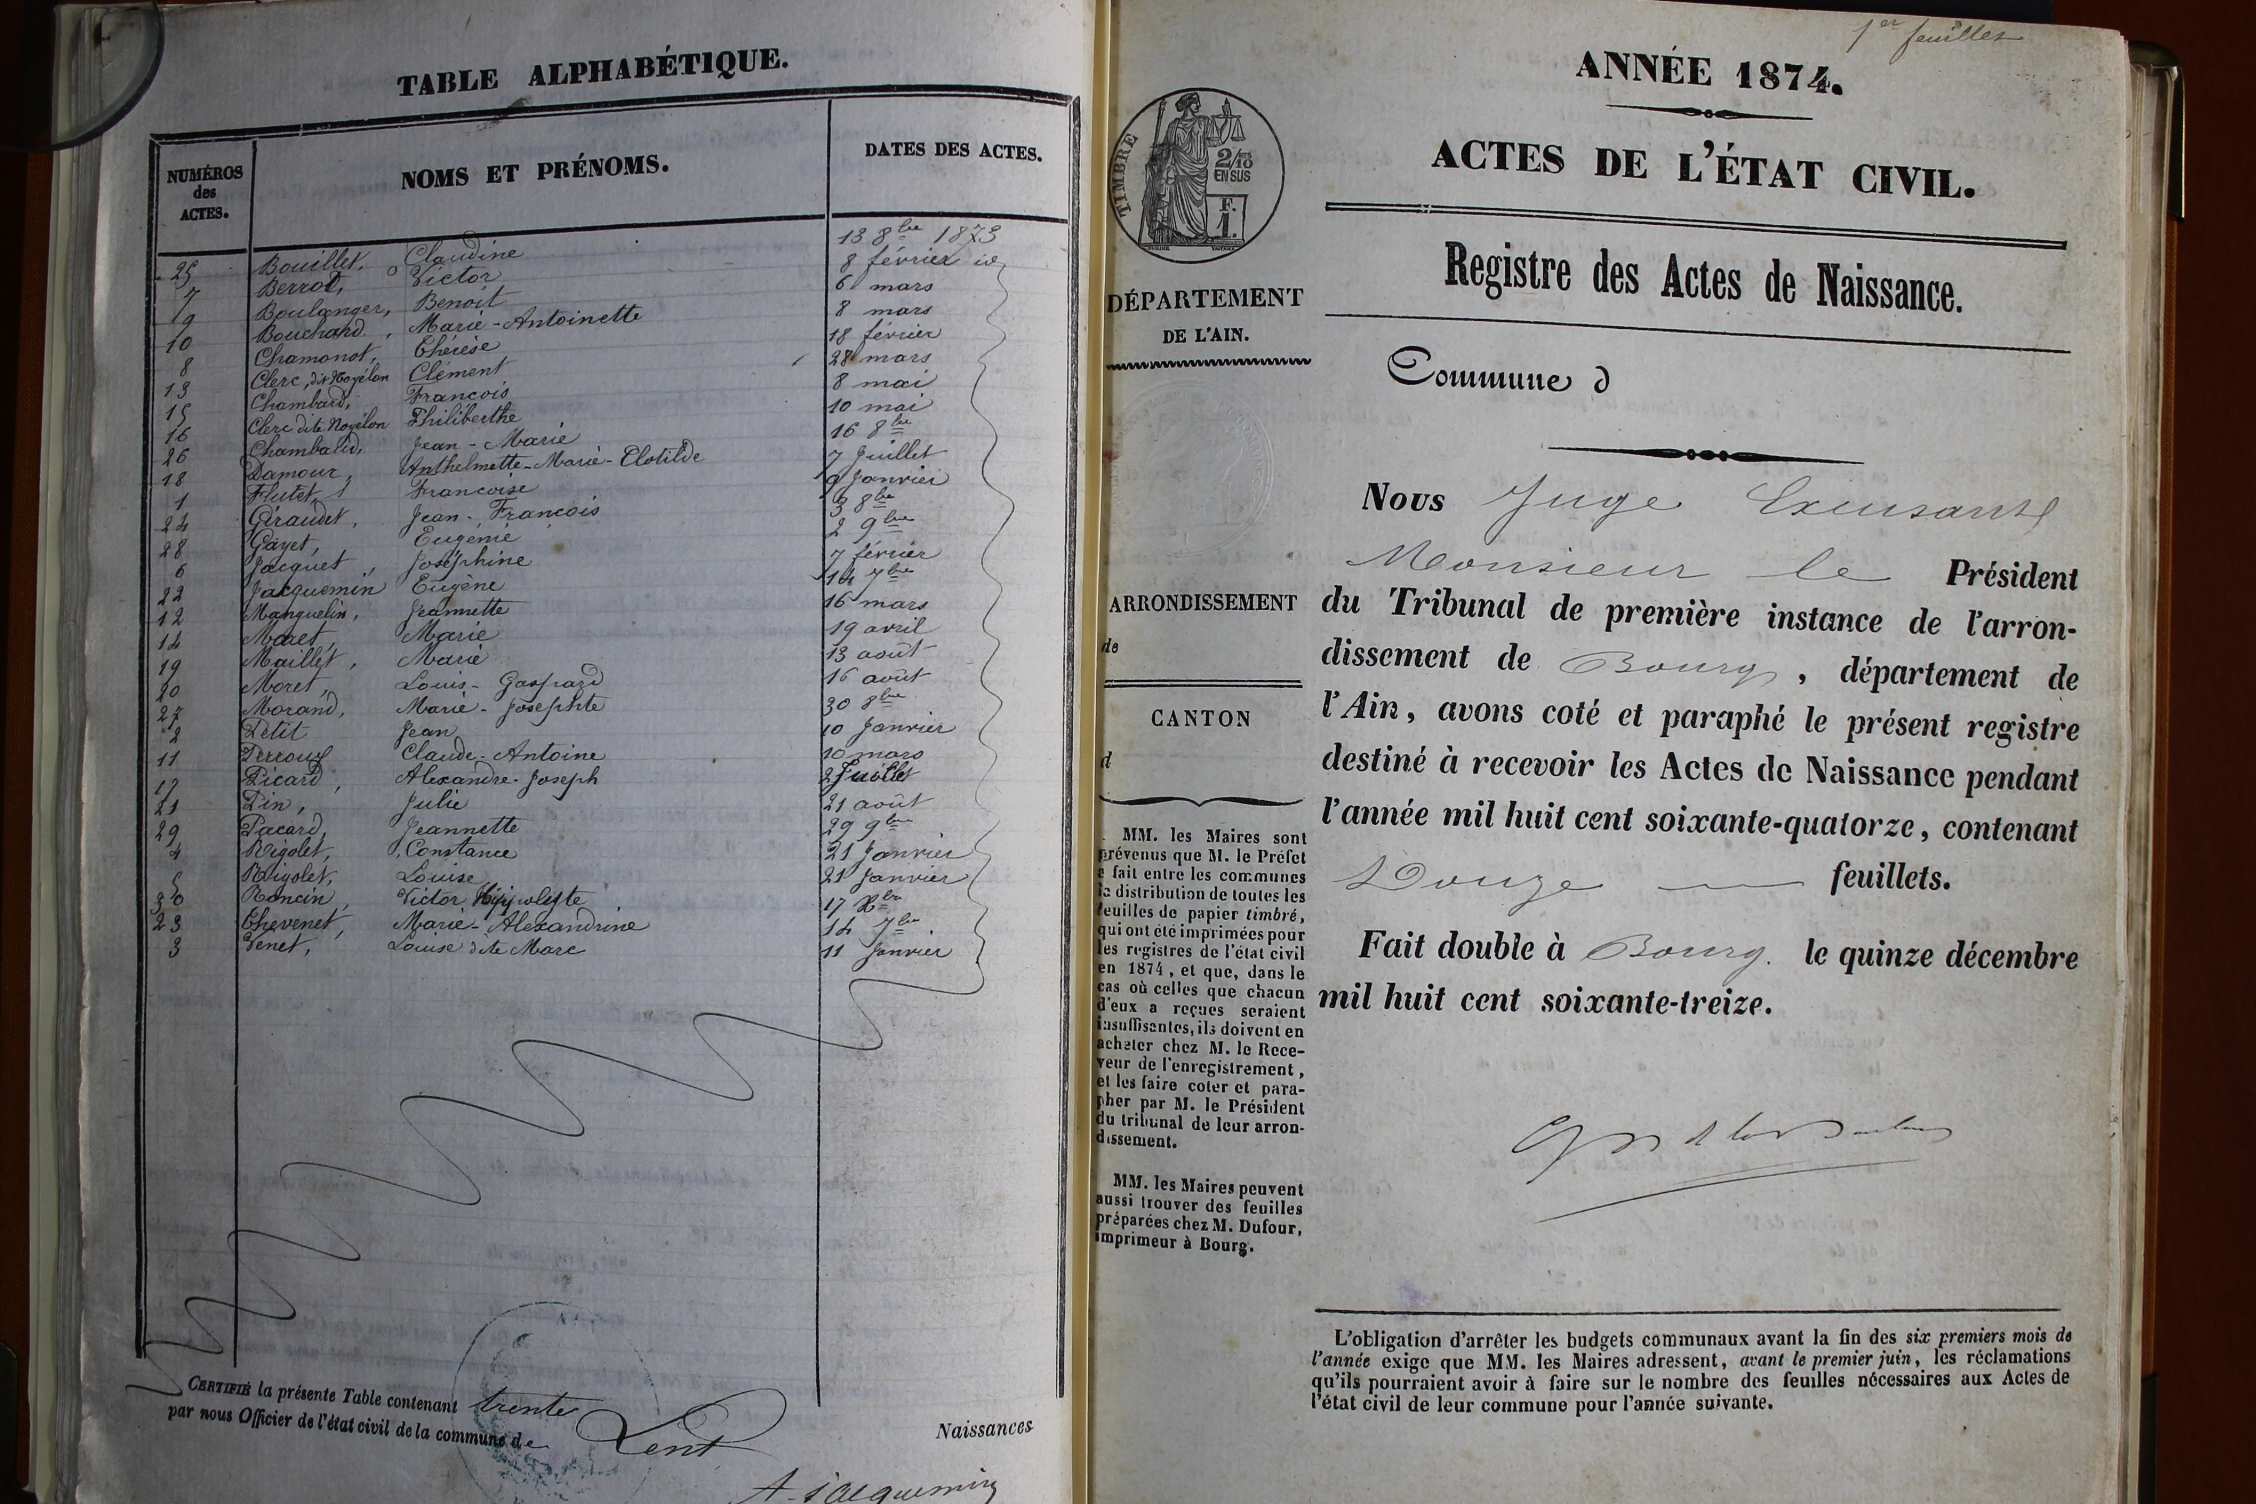 TABLE ALPHABÉTIQUE.
NUMÉROS des ACTES. NOMS ET PRÉNOMS. DATES DES ACTES.
25 Bouillet, Claudine 13 8bre 1873
7 Berrod, Victor 8 février id
9 Boulanger, Benoit 6 mars
10 Bouchard, Marie-Antoinette 8 mars
8 Chamonot, Thérèse 18 février
13 Clerc, dit Noyélon Clément 28 mars
15 Chambard, François 8 mai
16 Clerc dite Noyélon Philiberthe 10 mai
26 Chambalid, Jean-Marie 16 8bre
18 Damour, Anthelmette-Marie-Clotilde 7 Juillet
1 Flutet, Françoise 9 Janvier
24 Giraudet, Jean-François 3 8bre
28 Gayet, Eugénie 2 9bre
6 Jacquet, Joséphine 7 février
22 Jacquemin Eugène 14 7bre
12 Manguelin, Jeannette 16 mars
14 Moret, Marie 19 avril
19 Maillet, Marie 13 août
20 Moret, Louis-Gaspard 16 août
27 Morand, Marie-Josephte 30 8bre
2 Petit Jean 10 Janvier
11 Perroux Claude-Antoine 10 mars
17 Picard, Alexandre-Joseph 2 Juillet
21 Pin, Julie 21 août
29 Pacard, Jeannette 29 9bre
4 Rigolet, Constance 21 Janvier
5 Rigolet, Louise 21 Janvier
30 Roncin, Victor Hippolyte 17 Xbre
23 Thevenet, Marie-Alexandrine 14 7bre
3 Venet, Louise dite Marc 11 Janvier
CERTIFIÉ la présente Table contenant trente Naissances
par nous Officier de l'état civil de la commune de Lent
A. Jacquemin
1er feuillet
ANNÉE 1874.
ACTES DE L'ÉTAT CIVIL.
Registre des Actes de Naissance.
TIMBRE
2/10
EN SUS
F.
1.
DÉPARTEMENT
DE L'AIN.
ARRONDISSEMENT
de
CANTON
d
MM. les Maires sont
prévenus que M. le Préfet
a fait entre les communes
la distribution de toutes les
feuilles de papier timbré,
qui ont été imprimées pour
les registres de l'état civil
en 1874, et que, dans le
cas où celles que chacun
d'eux a reçues seraient
insuffisantes, ils doivent en
acheter chez M. le Rece-
veur de l'enregistrement,
et les faire coter et para-
pher par M. le Président
du tribunal de leur arron-
dissement.
MM. les Maires peuvent
aussi trouver des feuilles
préparées chez M. Dufour,
imprimeur à Bourg.
Commune d
Nous Juge Excusant
Monsieur le Président
du Tribunal de première instance de l'arron-
dissement de Bourg, département de
l'Ain, avons coté et paraphé le présent registre
destiné à recevoir les Actes de Naissance pendant
l'année mil huit cent soixante-quatorze, contenant
Douze feuillets.
Fait double à Bourg. le quinze décembre
mil huit cent soixante-treize.
L'obligation d'arrêter les budgets communaux avant la fin des six premiers mois de
l'année exige que MM. les Maires adressent, avant le premier juin, les réclamations
qu'ils pourraient avoir à faire sur le nombre des feuilles nécessaires aux Actes de
l'état civil de leur commune pour l'année suivante.